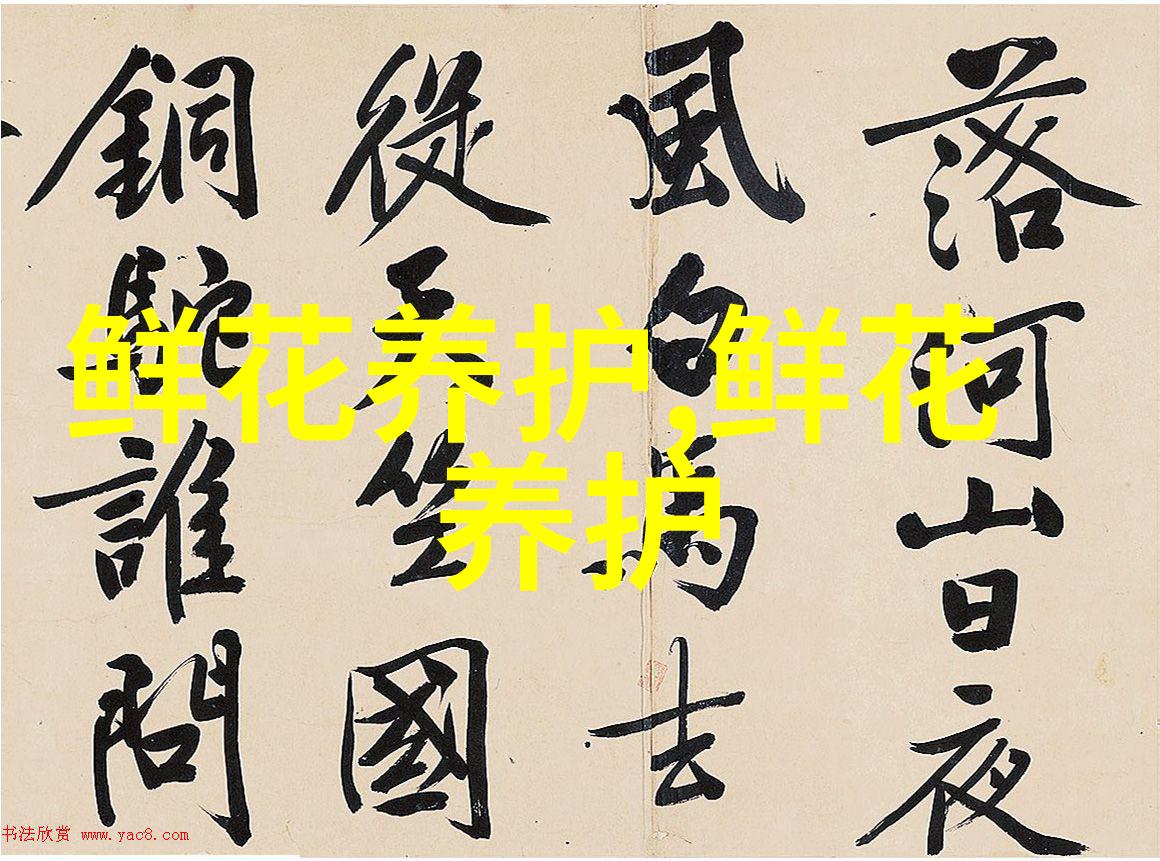 落河山日夜
風白馬去
從天竺國
銅駝誰問
鲜花养护,鲜花
养护
书法欣赏 www.yac8.com